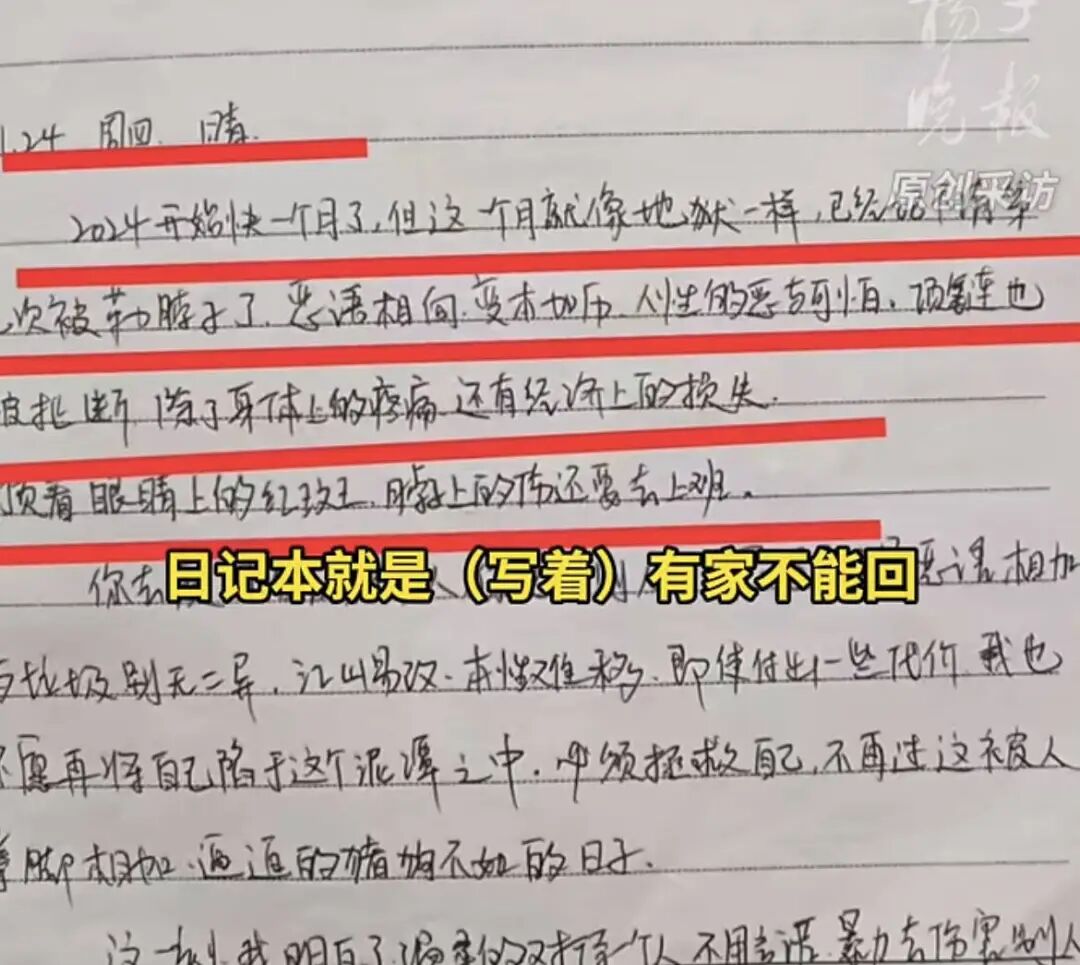 扬子
晚报
原创采访
1.24 周四 晴.
2024开始快一个月了,但这一个月就像地狱一样,已经
次被勒脖子了.恶语相向.变本加厉.人性的恶与可怕.项链也
被扯断 除了身体上的疼痛 还有经济上的损失.
顶着眼睛上的红斑,脖子上的伤还要去上班.
日记本就是（写着）有家不能回
你去 恶语相加
与垃圾别无二异.江山易改.本性难移.即使付出一些代价 我也
不愿再将自己陷于这个泥潭之中.必须拯救自己,不再过这被人
拳脚相加.逼逼的猪狗不如的日子.
这一刻我明白了温柔的对待一个人 不用言语.暴力去伤害别人